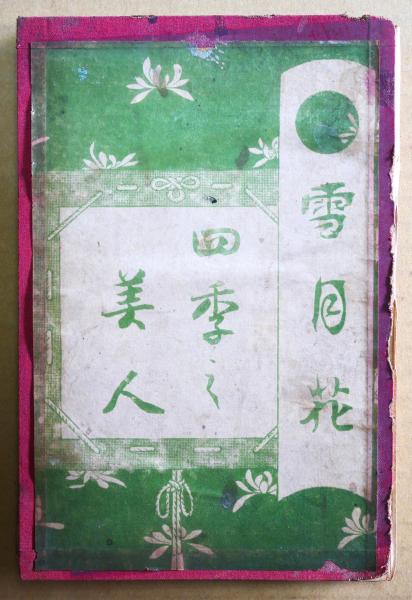 雪月花
四季之
美人